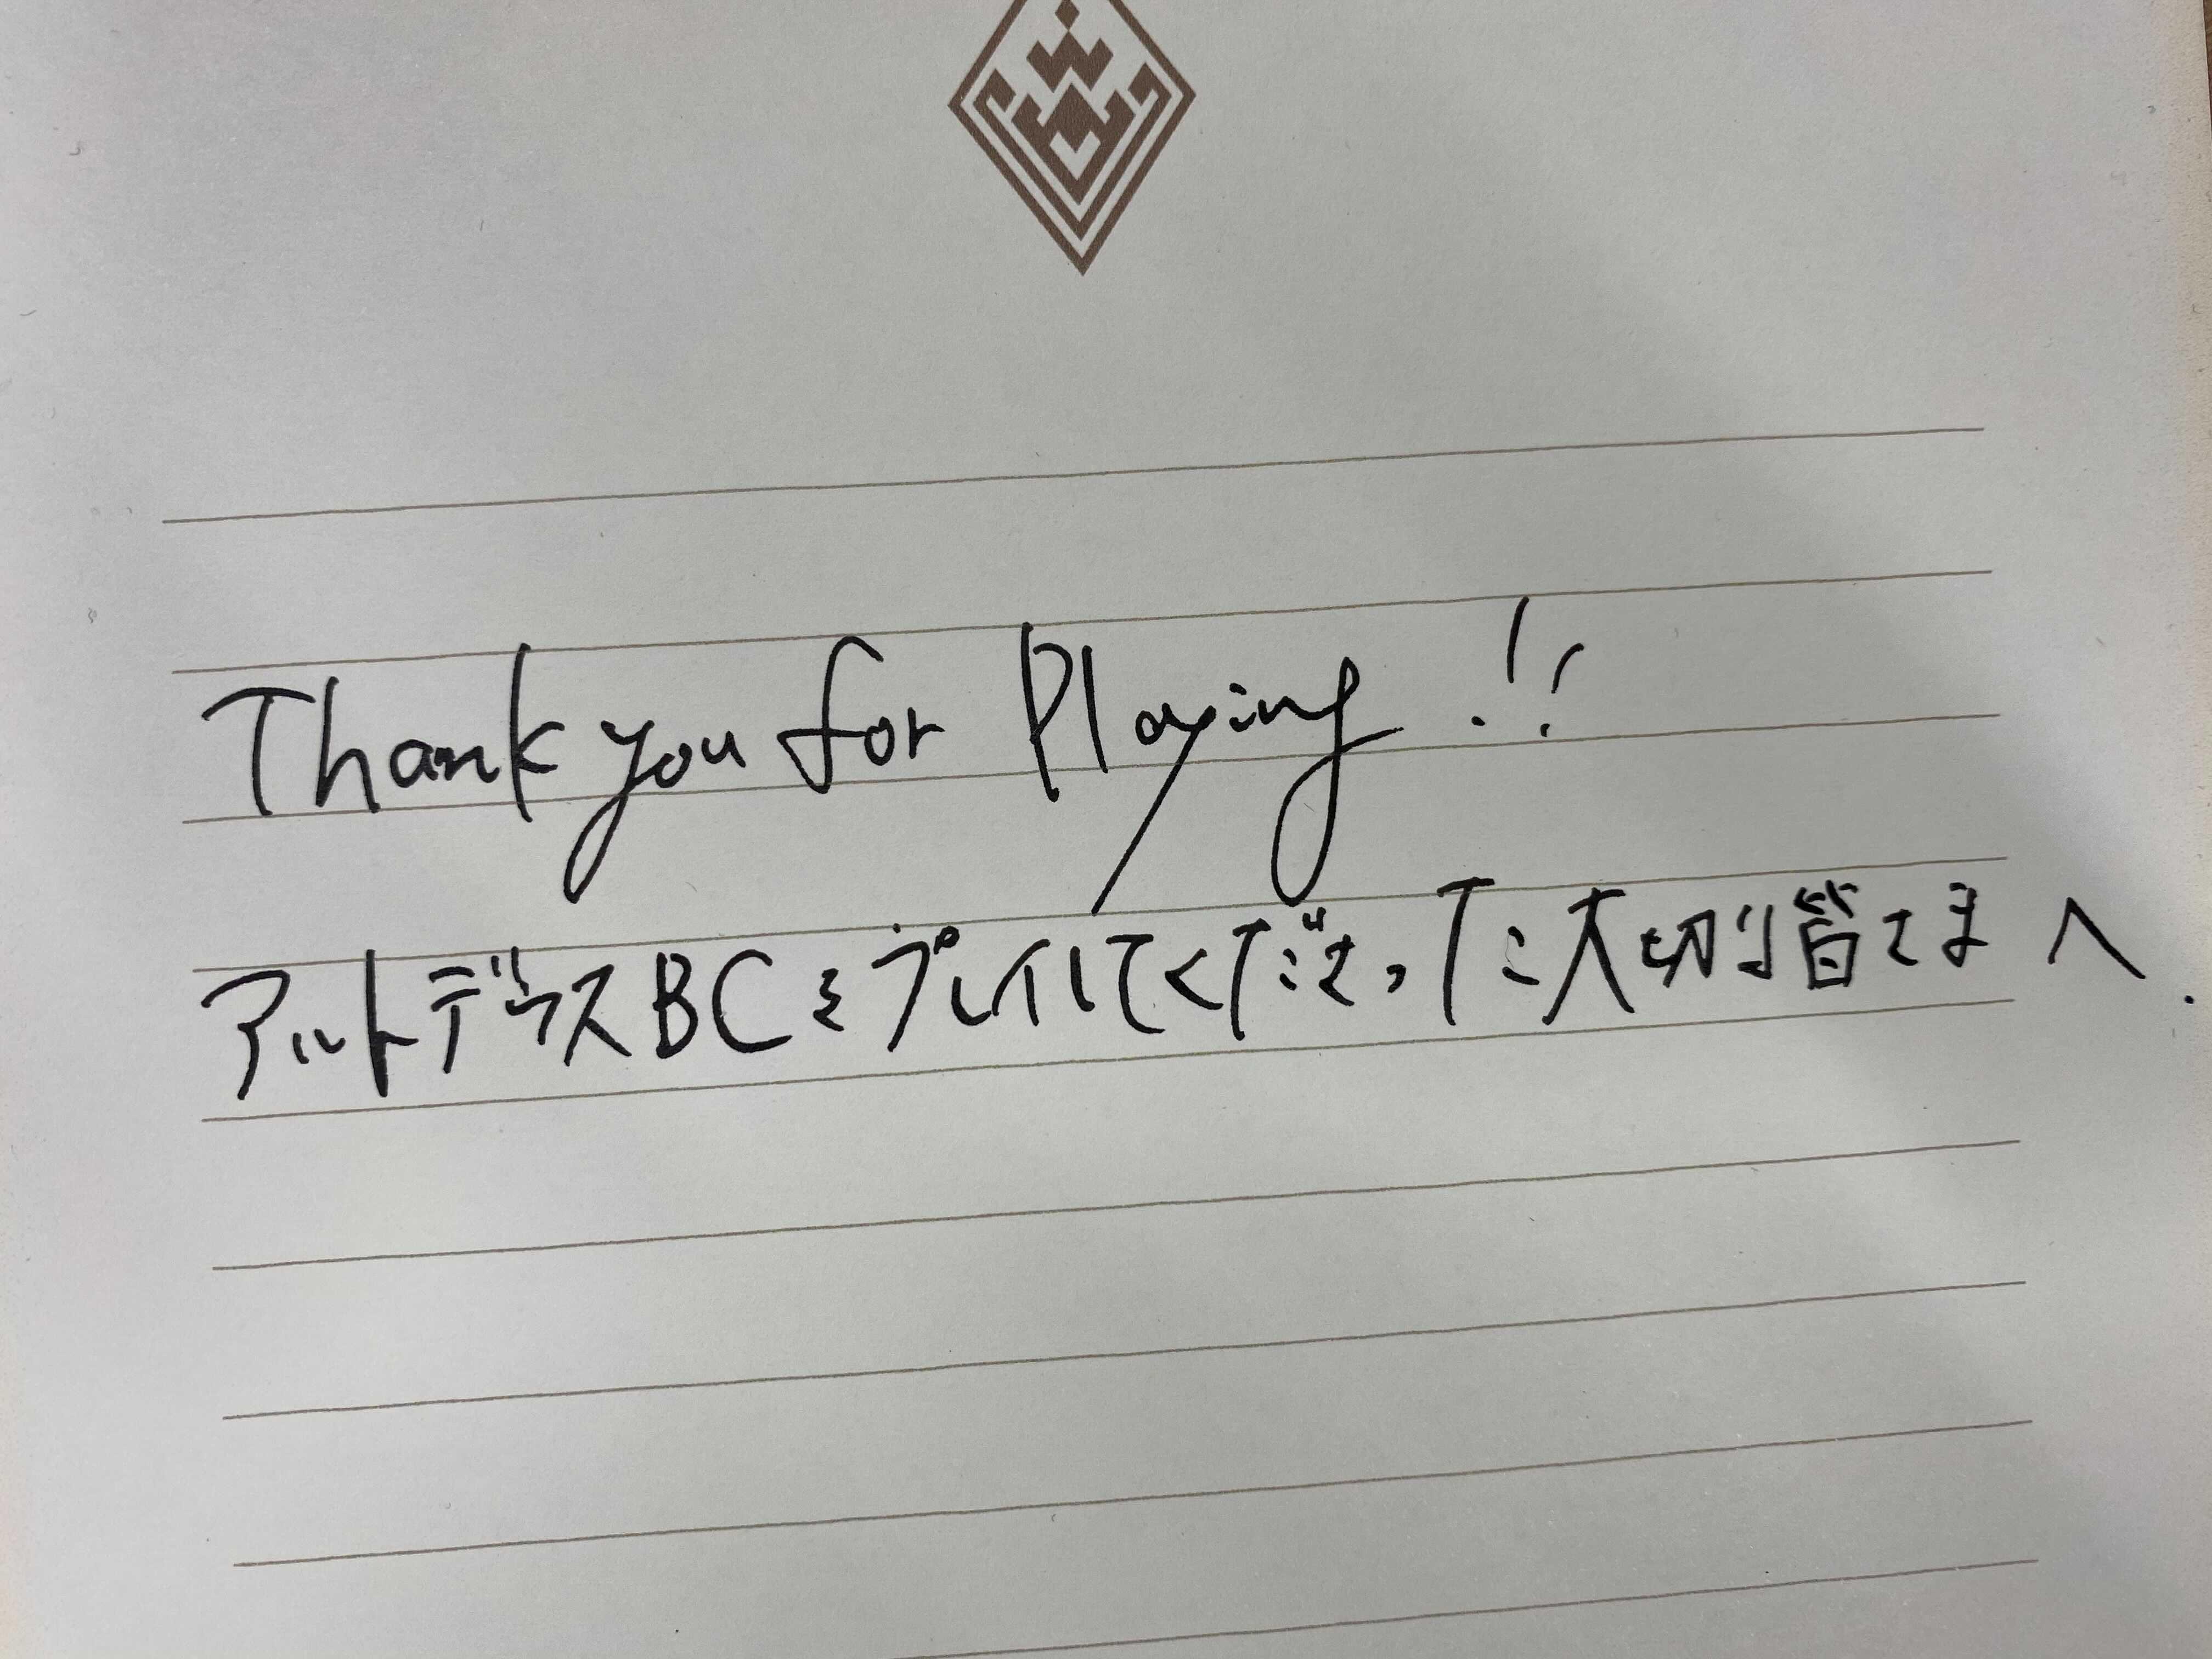 Thank you for Playing!!
アルトデウスBCをプレイしてくださった大切な皆さまへ.